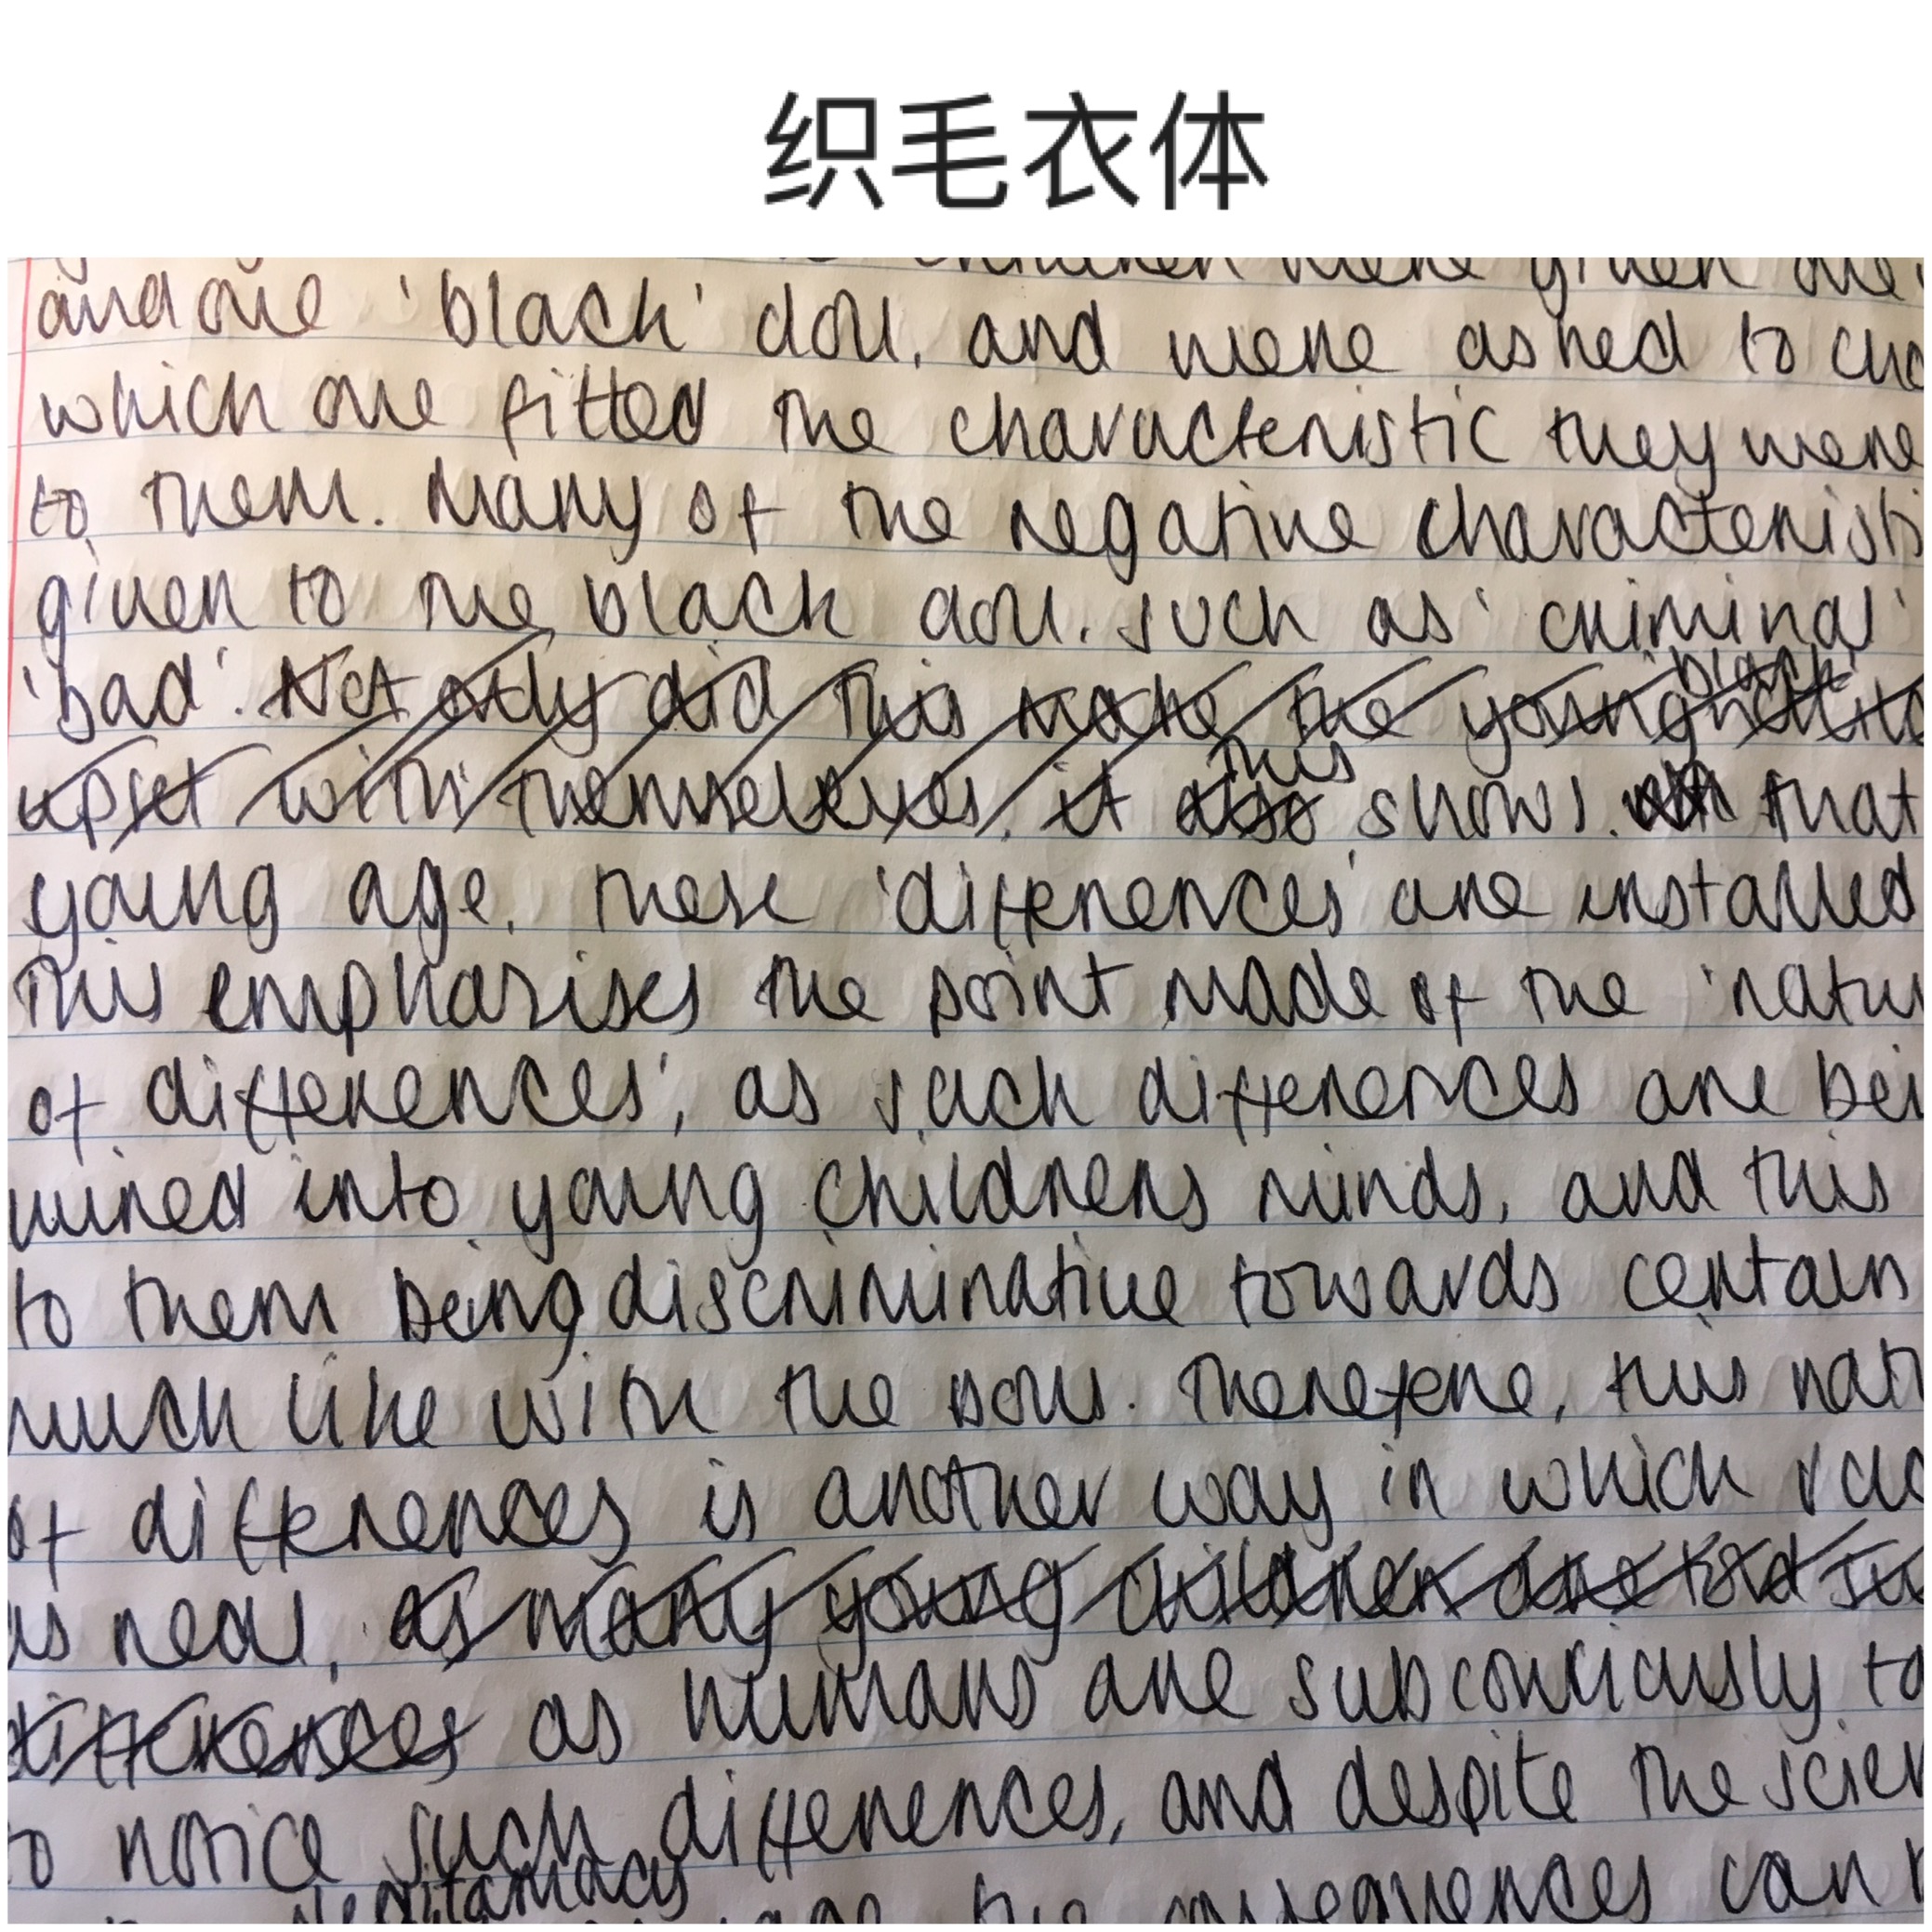 织毛衣体
children were given one
and one 'black' doll, and were asked to cho
which one fitted the characteristic they were
to them. Many of the negative characteristi
given to the black doll. such as 'criminal'
'bad'. Not only did this make the young 'black' child
upset with themselves, it also this shows that
young age, these 'differences' are installed
This emphasises the point made of the 'natur
of differences', as such differences are bei
wired into young childrens minds, and this
to them being discriminative towards certain
much like with the dolls. Therefore, this natu
of differences is another way in which rac
is real, as many young children are told su
differences as humans are subconsciously to
to notice such differences, and despite the scien
legitamacy
consequences can